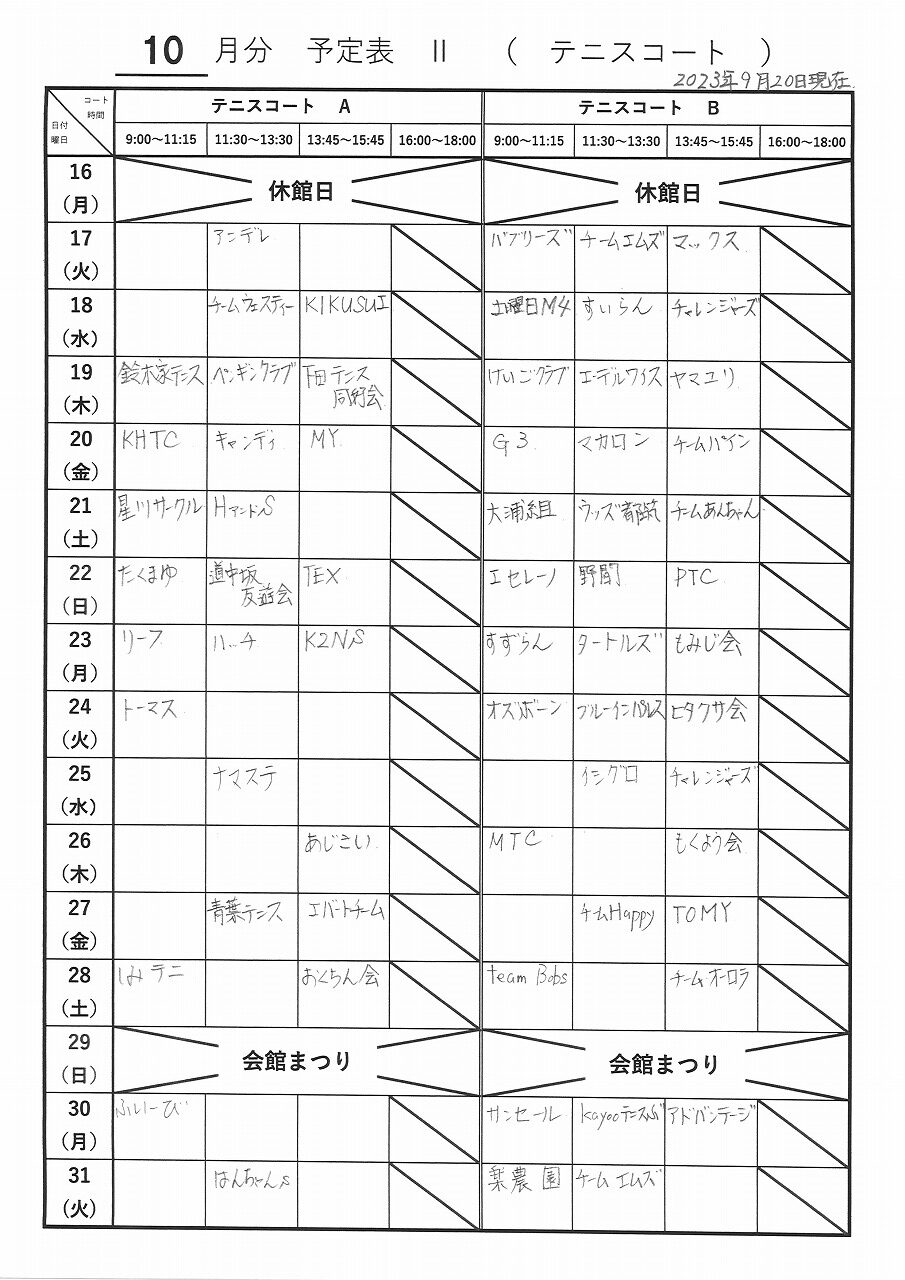 10 月分 予定表 Ⅱ ( テニスコート )
2023年9月20日現在
コート 時間 日付 曜日
テニスコート A テニスコート B
9:00～11:15 11:30～13:30 13:45～15:45 16:00～18:00 9:00～11:15 11:30～13:30 13:45～15:45 16:00～18:00
16 (月) 休館日 休館日
17 (火) アンデレ バブリーズ チームエムズ マックス
18 (水) チームフェスティー KIKUSUI 土曜日M4 すいらん チャレンジャーズ
19 (木) 鈴木家テニス ペンギンクラブ 下田テニス同好会 けいごクラブ エーデルワイス ヤマユリ
20 (金) KHTC キャンディ MY G3 マカロン チームパイン
21 (土) 星川サークル HアンドS 大浦組 ウッズ都筑 チームあんちゃん
22 (日) たくまゆ 道中坂友遊会 TEX エセレーノ 野間 PTC
23 (月) リーフ ハッチ K2NS すずらん タートルズ もみじ会
24 (火) トーマス オズボーン ブルーインパルス ヒタクサ会
25 (水) ナマステ イシグロ チャレンジャーズ
26 (木) あじさい MTC もくよう会
27 (金) 青葉テニス エバートチーム チームHappy TOMY
28 (土) しみテニ おくちん会 team Bobs チームオーロラ
29 (日) 会館まつり 会館まつり
30 (月) ふぃーび サンセール kayoo アドバンテージ
31 (火) はんちゃんs 梨農園 チームエムズ